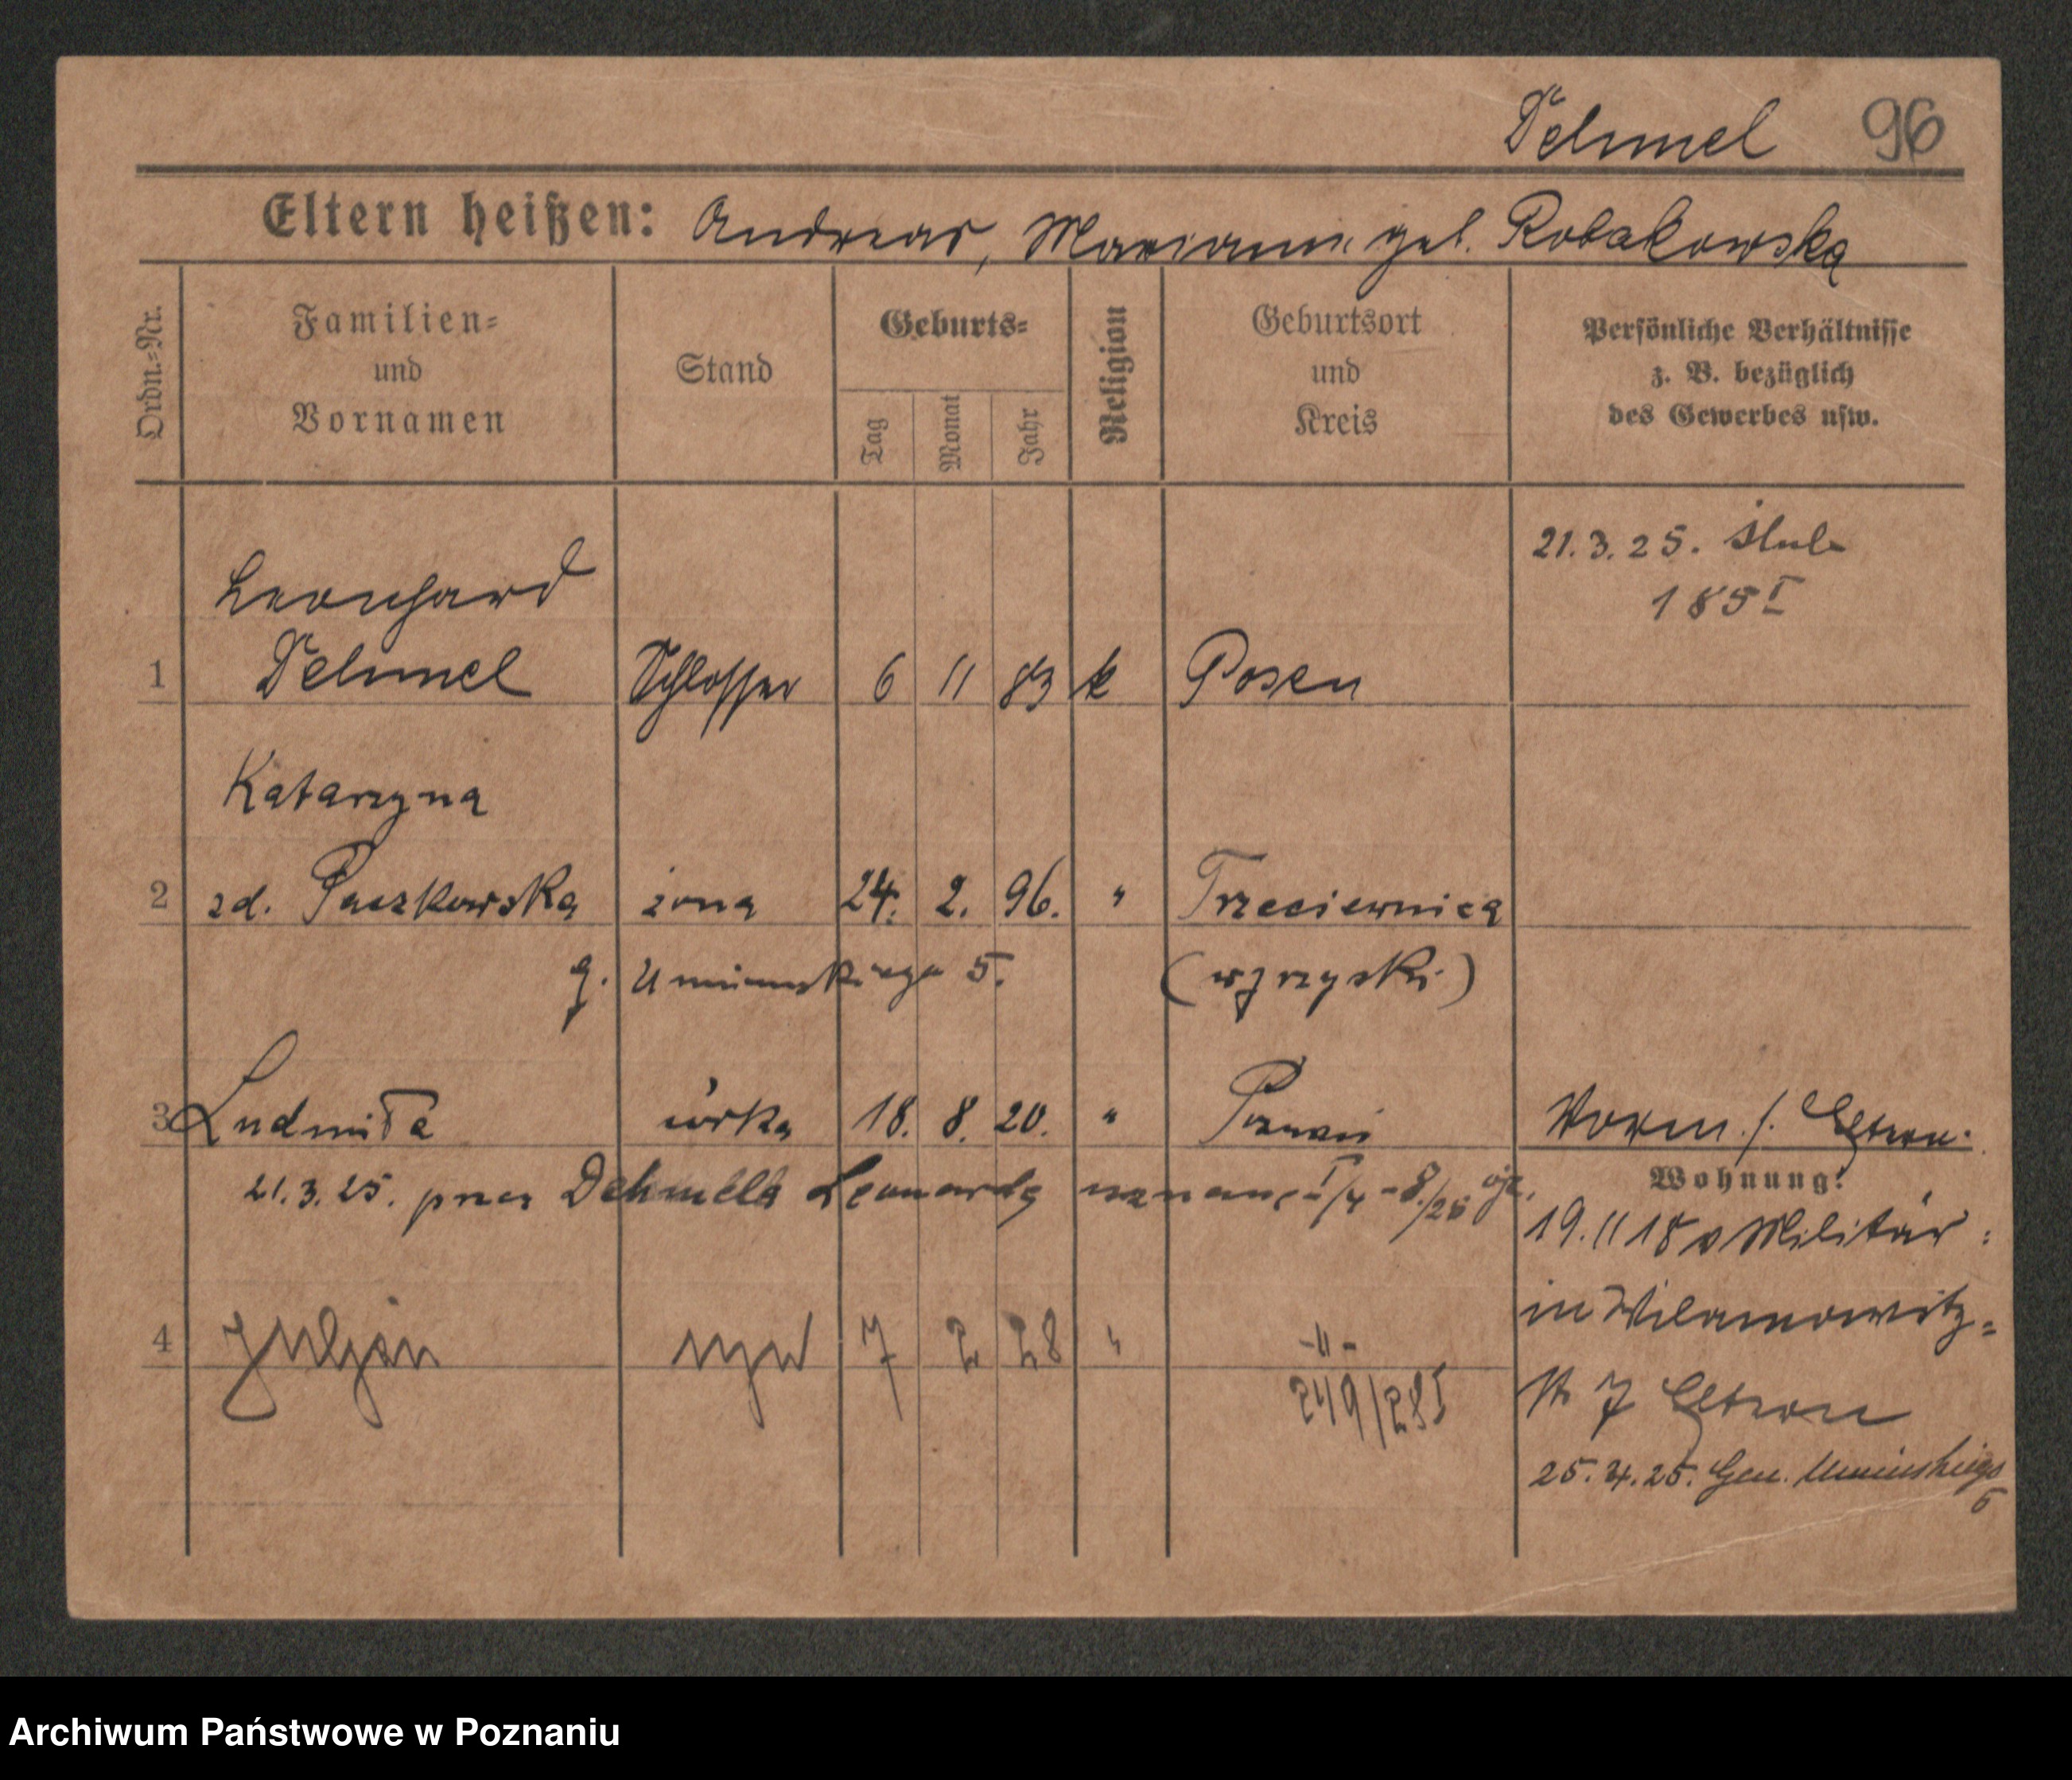 Dehmel 96
Eltern heißen: Andreas, Marianna geb. Robakowska
Ordn.=Nr.
Familien=
und
Vornamen
Stand
Geburts=
Tag
Monat
Jahr
Religion
Geburtsort
und
Kreis
Persönliche Verhältnisse
z. B. bezüglich
des Gewerbes usw.
21.3.25. ślub
185 I
Leonhard
1 Dehmel Schlosser 6 11 83 k Posen
Katarzyna
2 zd. Paczkowska żona 24. 2. 96. " Trzeciewnica
g. Umińskiego 5. (wyrzyski)
3 Ludmiła córka 18. 8. 20. " Poznań Vorm. f. Eltern.
21.3.25. przez Dehmella Leonarda
Wohnung:
19.11 18 v Militär:
in Wilamowitz=
str 7 Eltern
4 Juljan syn 7 2 28 " -"-
249/28 I
25.4.25. Gen. Umińskiego
5
Archiwum Państwowe w Poznaniu